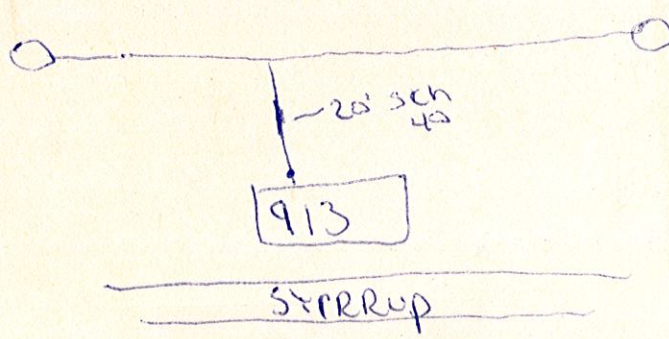 20' sch
40
913
STIRRUP